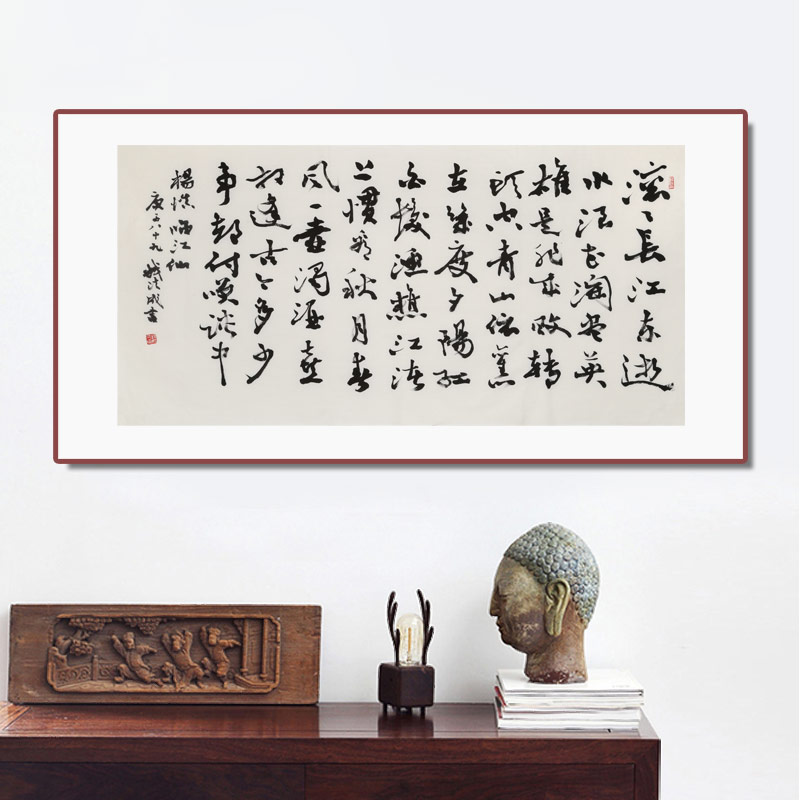 滚〻長江東逝
水浪花淘盡英
雄是非成敗轉
頭空青山依舊
在幾度夕陽紅
白髮漁樵江渚
上慣看秋月春
風一壺濁酒喜
相逢古今多少
事都付笑談中
楊慎臨江仙
庚子八十九